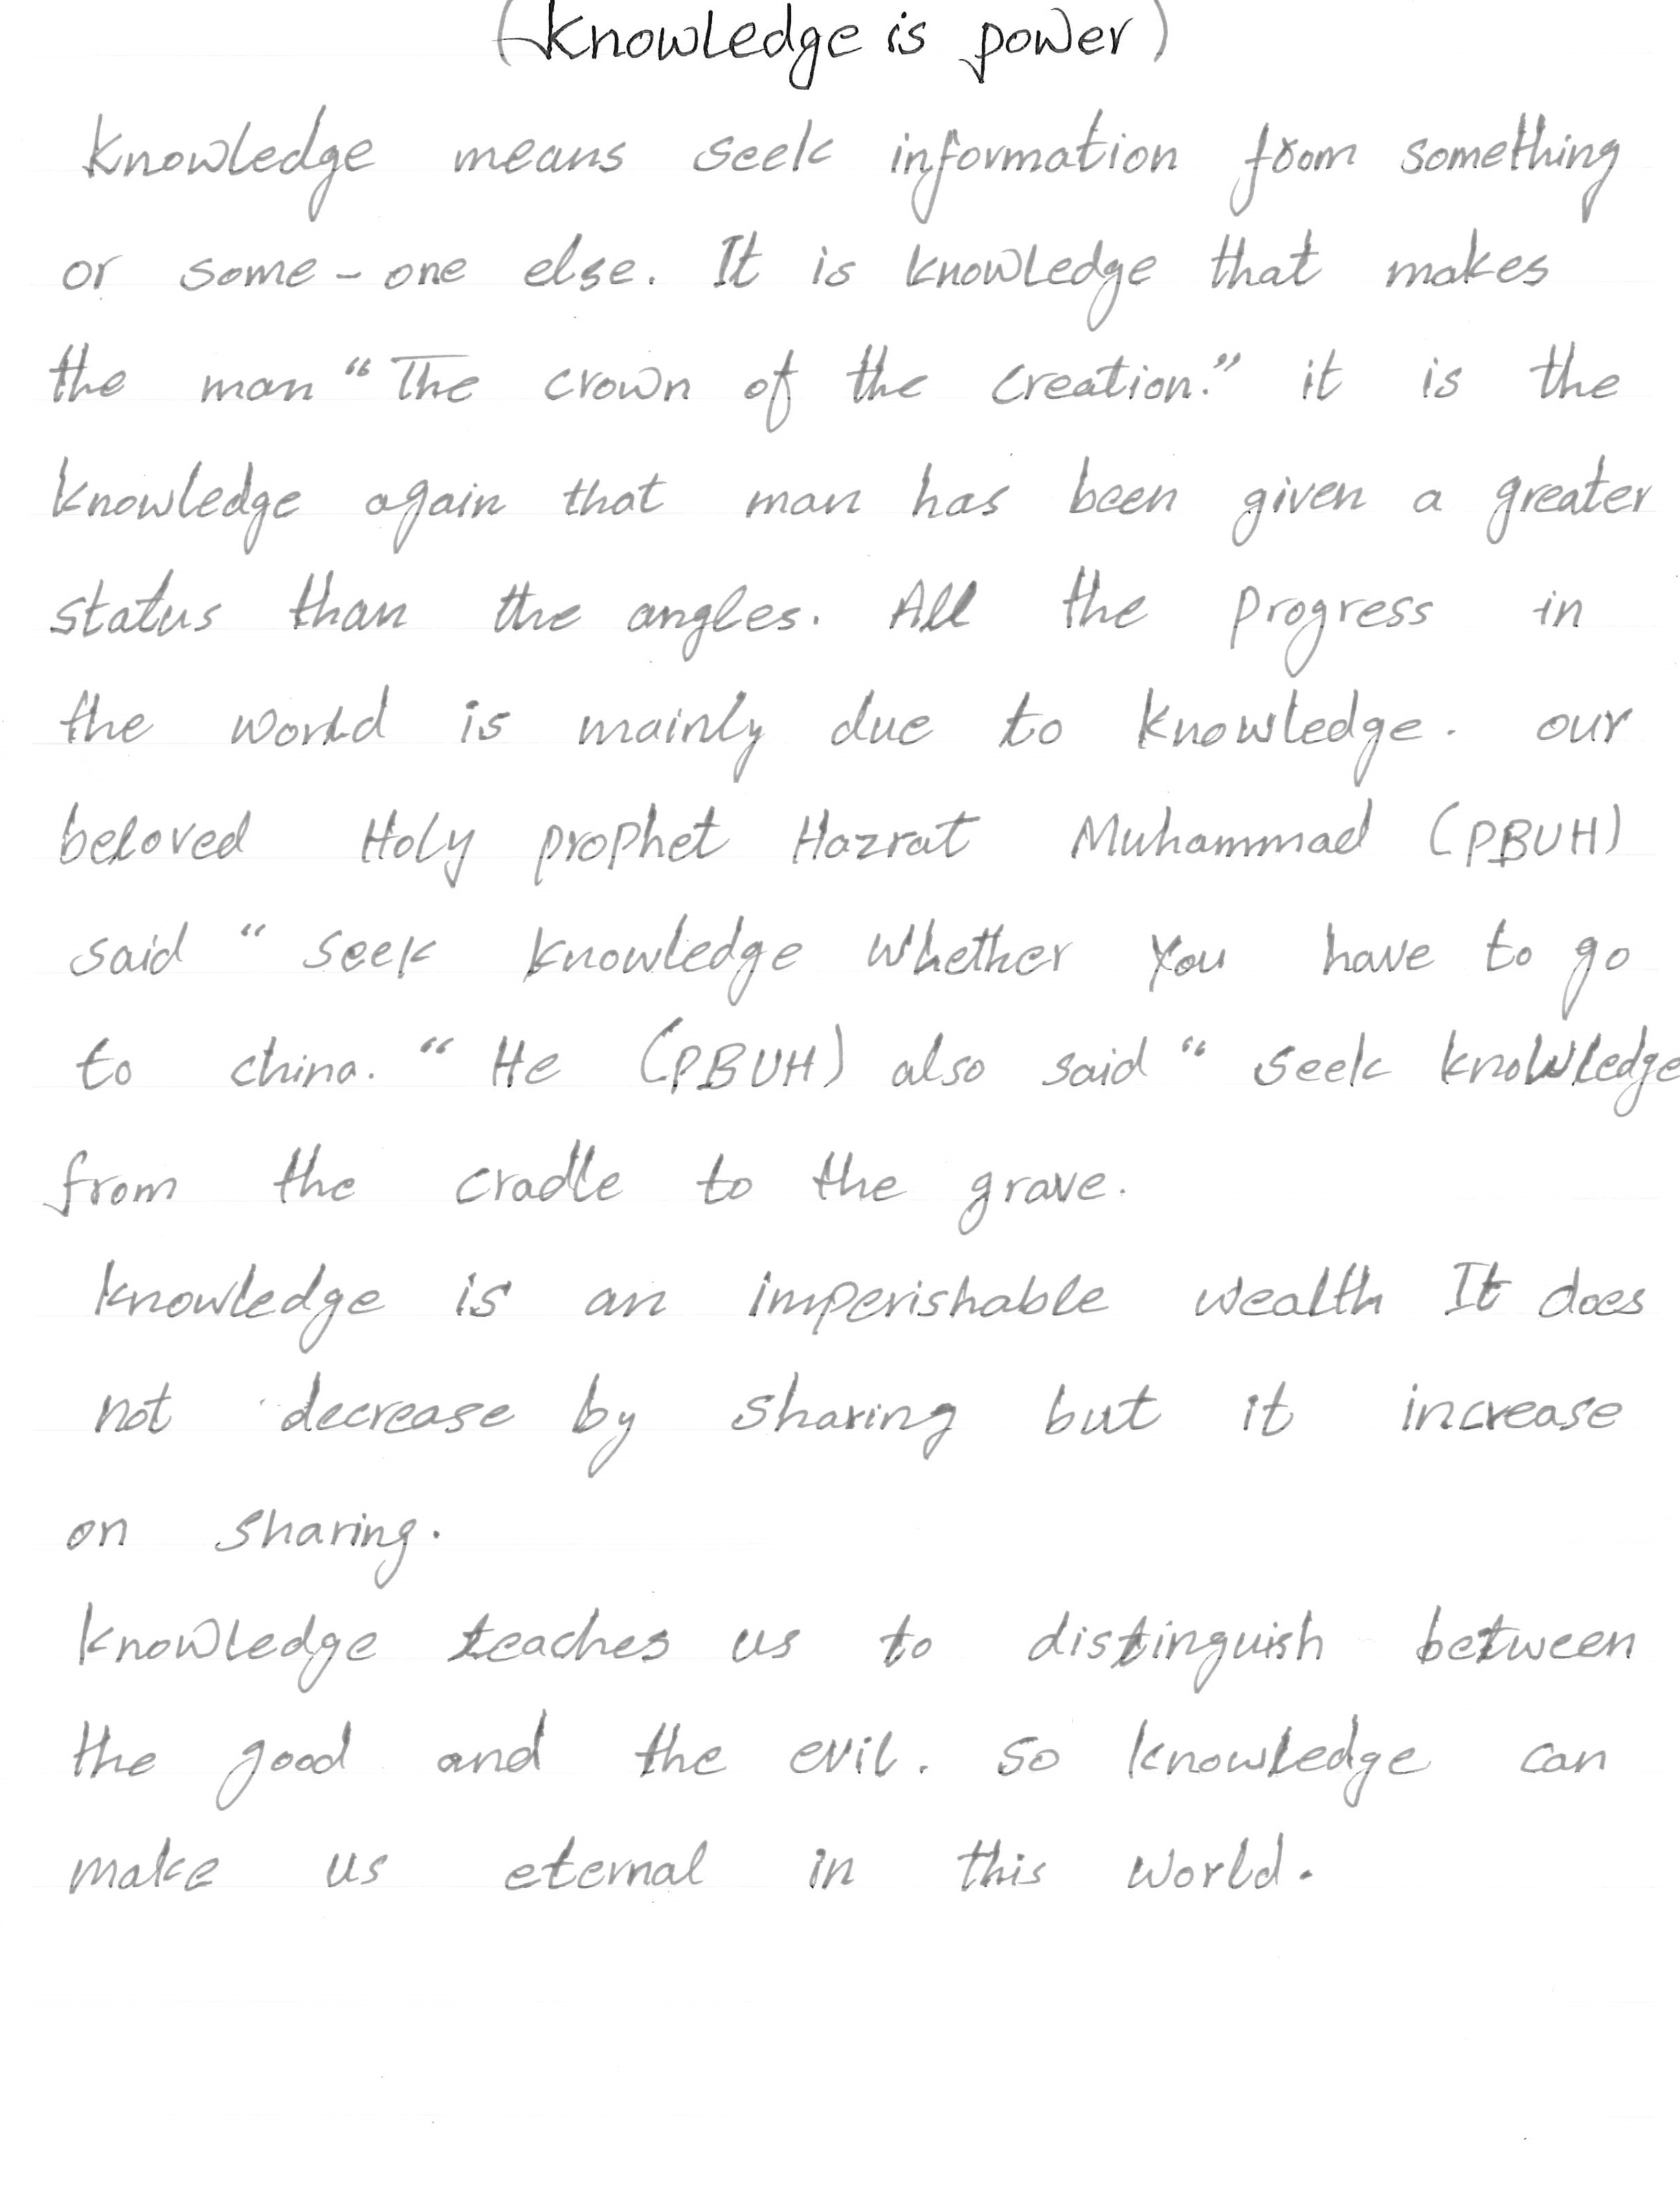 (Knowledge is power)
Knowledge means seek information from something
or some-one else. It is knowledge that makes
the man “The crown of the creation.” it is the
knowledge again that man has been given a greater
status than the angles. All the progress in
the world is mainly due to knowledge. our
beloved Holy prophet Hazrat Muhammad (PBUH)
said “ seek knowledge whether you have to go
to china. “ He (PBUH) also said “ seek knowledge
from the cradle to the grave.
knowledge is an imperishable wealth It does
not decrease by sharing but it increase
on sharing.
knowledge teaches us to distinguish between
the good and the evil. so knowledge can
make us eternal in this world.